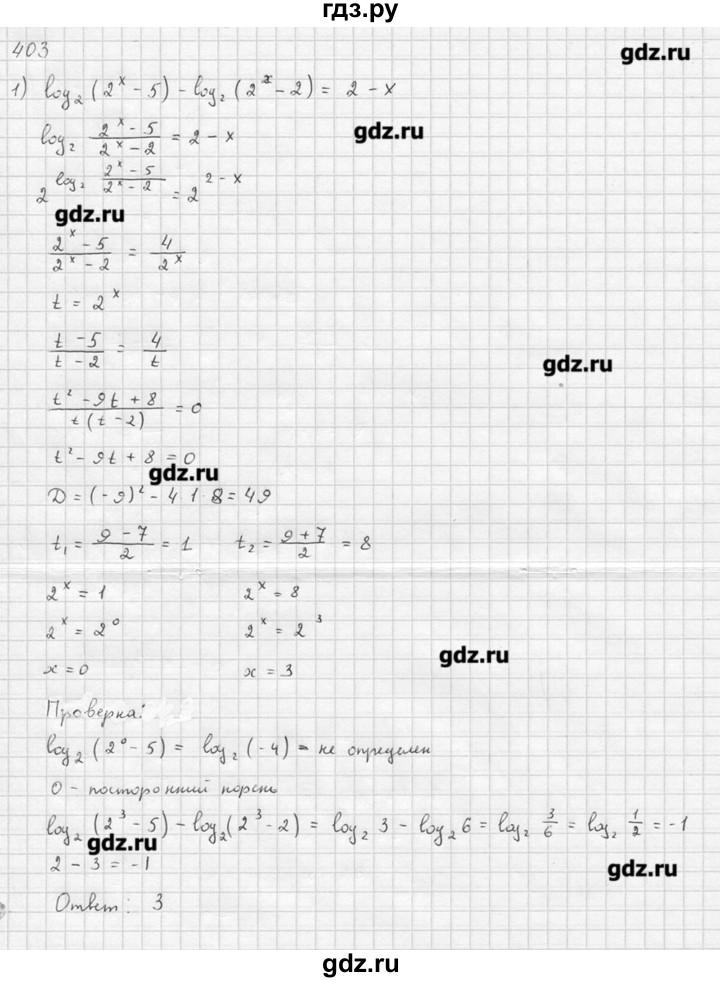 гдз.ру
403
gdz.ru
1) log₂(2ˣ - 5) - log₂(2ˣ - 2) = 2 - x
gdz.ru
log₂ (2ˣ - 5)/(2ˣ - 2) = 2 - x
2^(log₂ (2ˣ - 5)/(2ˣ - 2)) = 2^(2 - x)
gdz.ru
(2ˣ - 5)/(2ˣ - 2) = 4/2ˣ
t = 2ˣ
(t - 5)/(t - 2) = 4/t
gdz.ru
(t² - 9t + 8)/(t(t - 2)) = 0
t² - 9t + 8 = 0
gdz.ru
D = (-9)² - 4·1·8 = 49
t₁ = (9 - 7)/2 = 1 t₂ = (9 + 7)/2 = 8
2ˣ = 1 2ˣ = 8
2ˣ = 2⁰ 2ˣ = 2³
gdz.ru
x = 0 x = 3
Проверка:
log₂(2⁰ - 5) = log₂(-4) - не определен
0 - посторонний корень
log₂(2³ - 5) - log₂(2³ - 2) = log₂ 3 - log₂ 6 = log₂ 3/6 = log₂ 1/2 = -1
gdz.ru
2 - 3 = -1
gdz.ru
Ответ: 3
gdz.ru